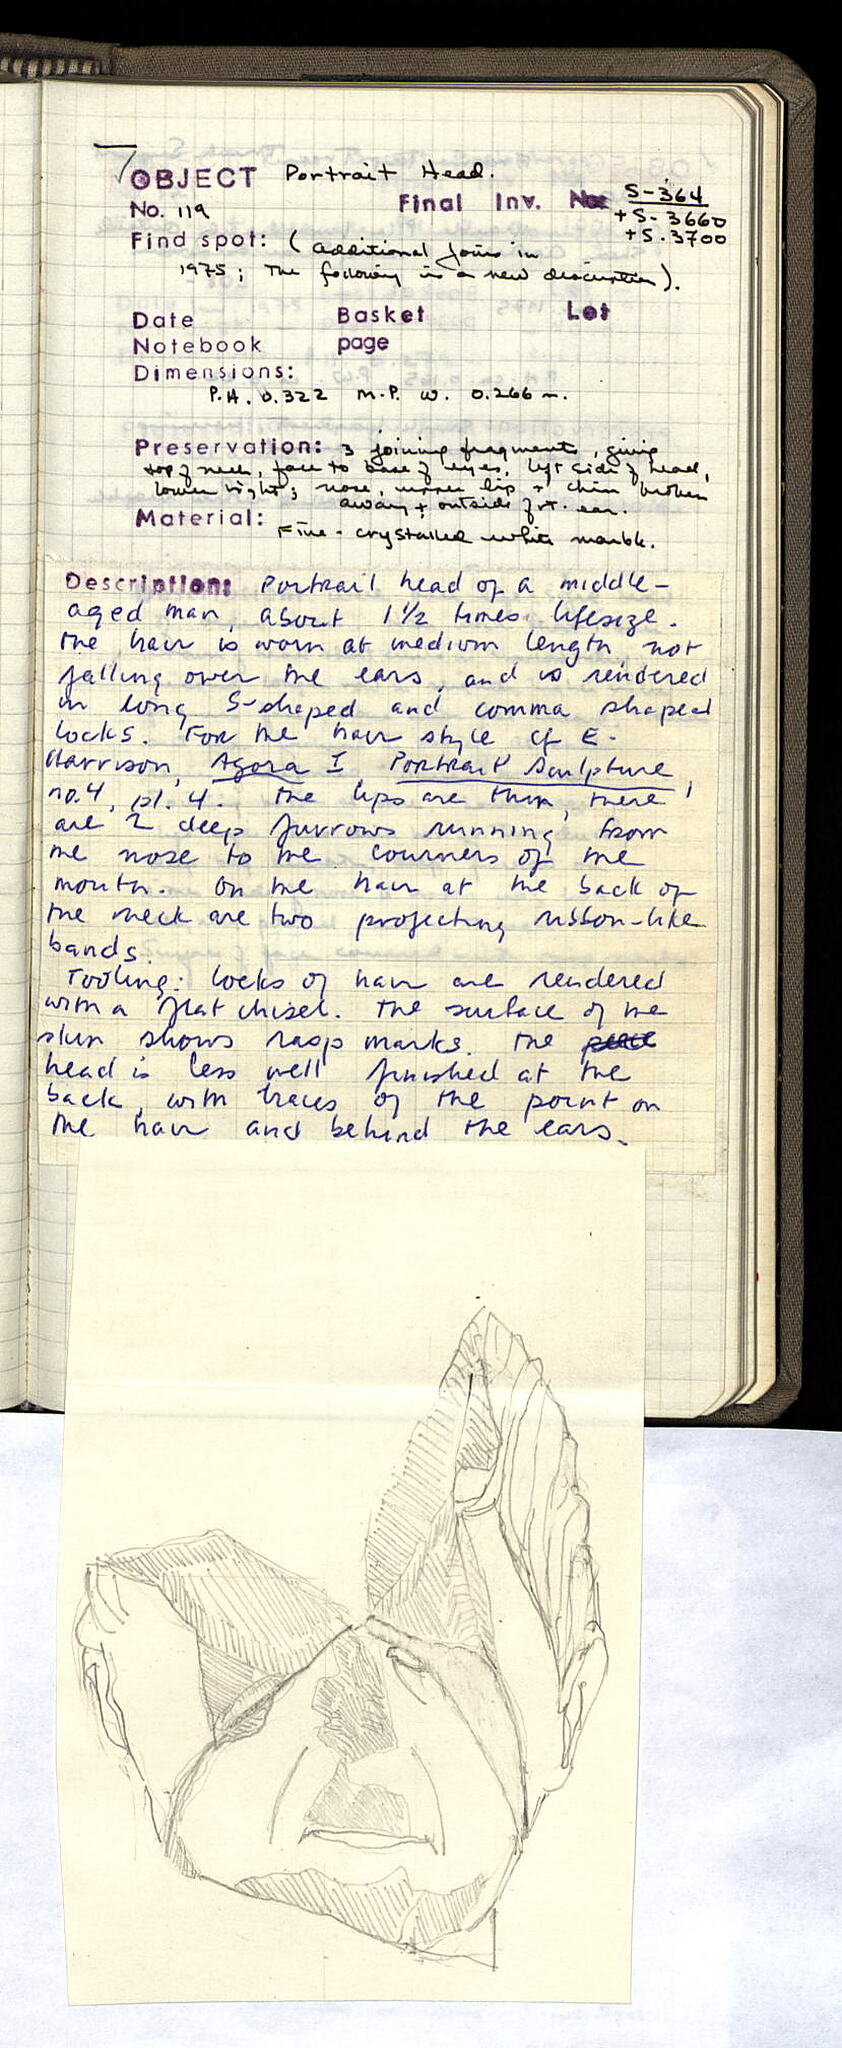 OBJECT Portrait Head.
No. 119 Final Inv. No: S-364
+ S-3660
+ S-3700
Find spot: (additional joins in
1975; the following is a new description).
Date Basket Lot
Notebook page
Dimensions:
P.H. 0.322 M.P. W. 0.266 m.
Preservation: 3 joining fragments, giving
top of neck, face to base of eyes, left side of head,
lower right; nose, upper lip + chin broken
away + outside of rt. ear.
Material:
Fine-crystalled white marble.
Description: Portrait head of a middle-
aged man, about 1 1/2 times lifesize.
The hair is worn at medium length, not
falling over the ears, and is rendered
in long S-shaped and comma shaped
locks. For the hair style cf E.
Harrison, Agora I, Portrait Sculpture,
no. 4, pl. 4. The lips are thin, there
are 2 deep furrows running from
the nose to the courners of the
mouth. On the hair at the back of
the neck are two projecting ribbon-like
bands.
Tooling: Locks of hair are rendered
with a flat chisel. The surface of the
skin shows rasp marks. The
head is less well finished at the
back, with traces of the point on
the hair and behind the ears.